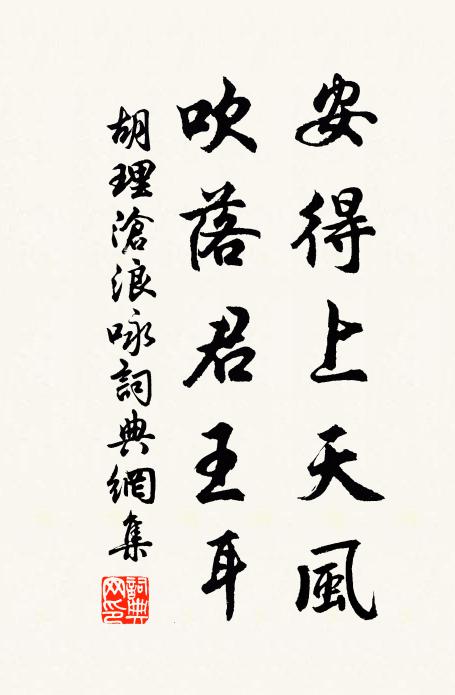 安得上天風
吹落君王耳
胡理滄浪咏詞典網集
詞典網印